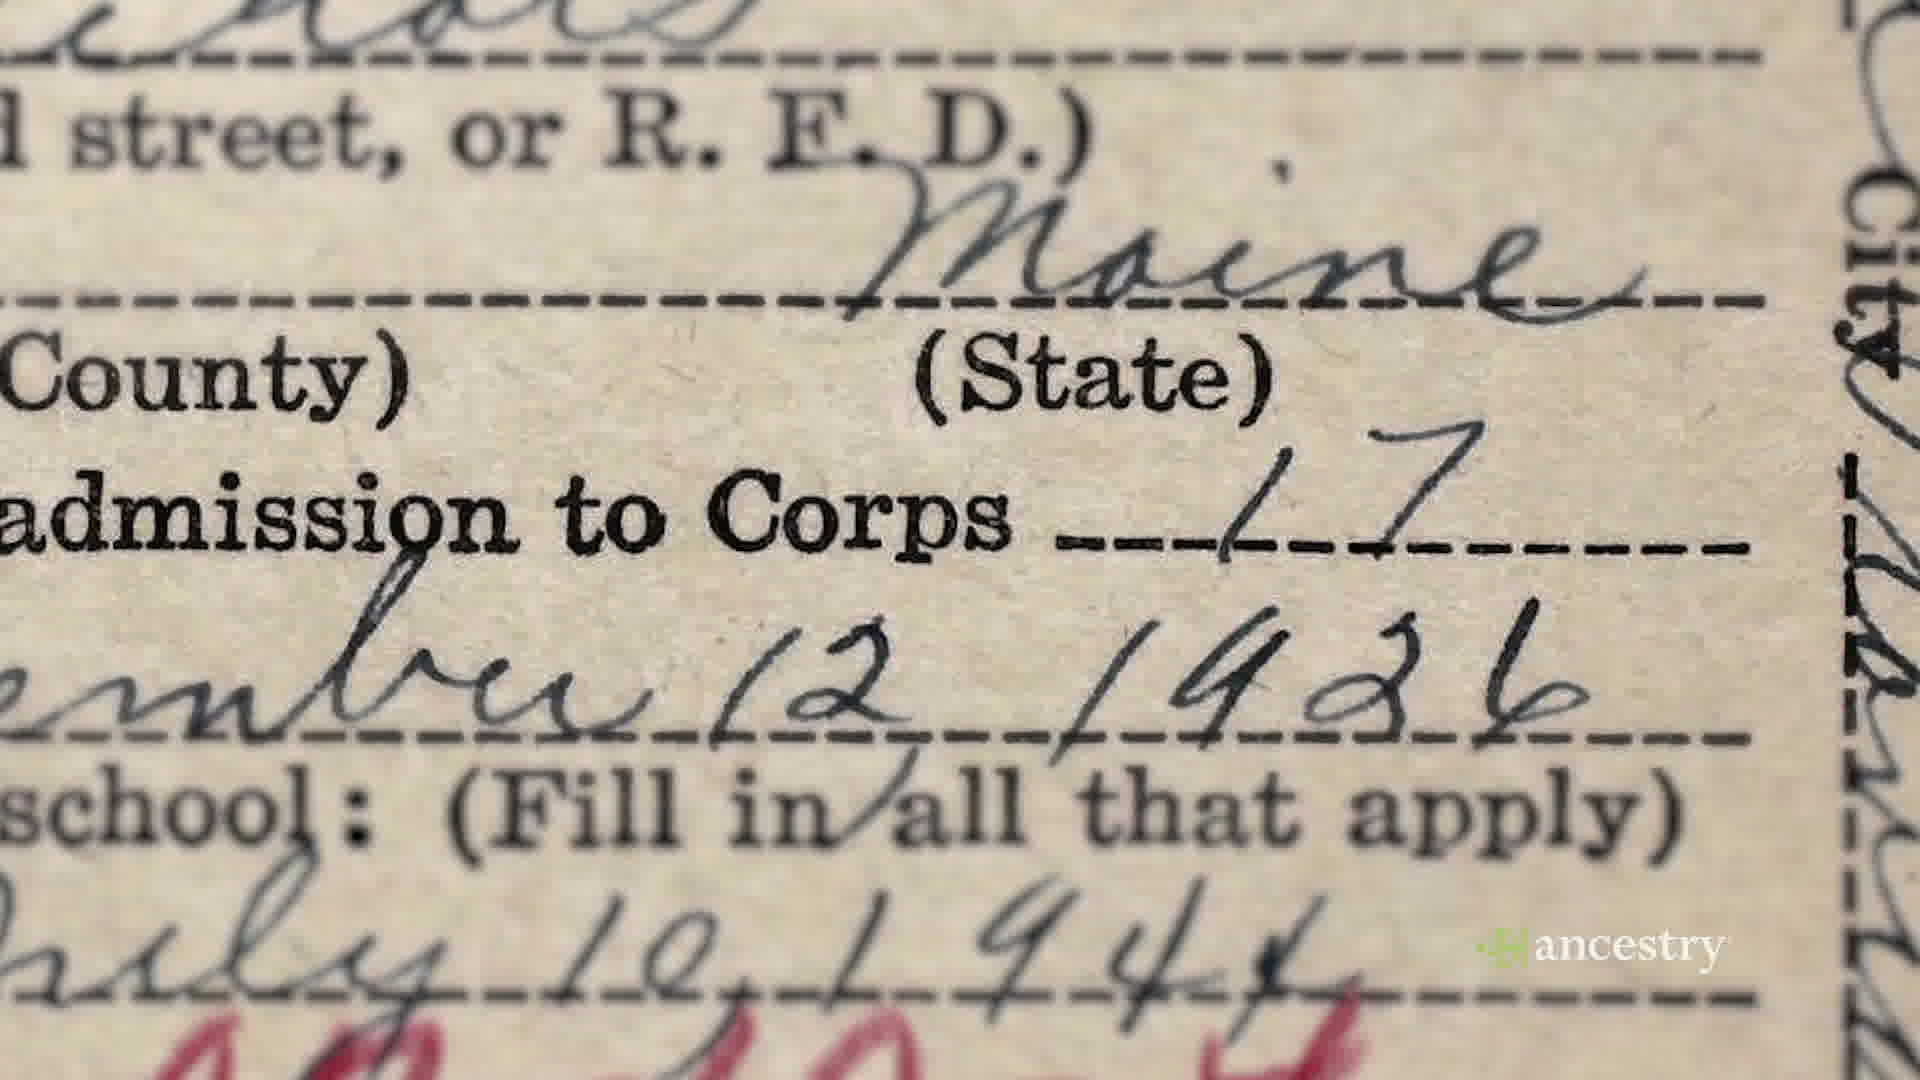 d street, or R. F. D.)
Maine
County) (State)
admission to Corps 17
ember 12, 1926
school: (Fill in all that apply)
10, 1944
City
ancestry